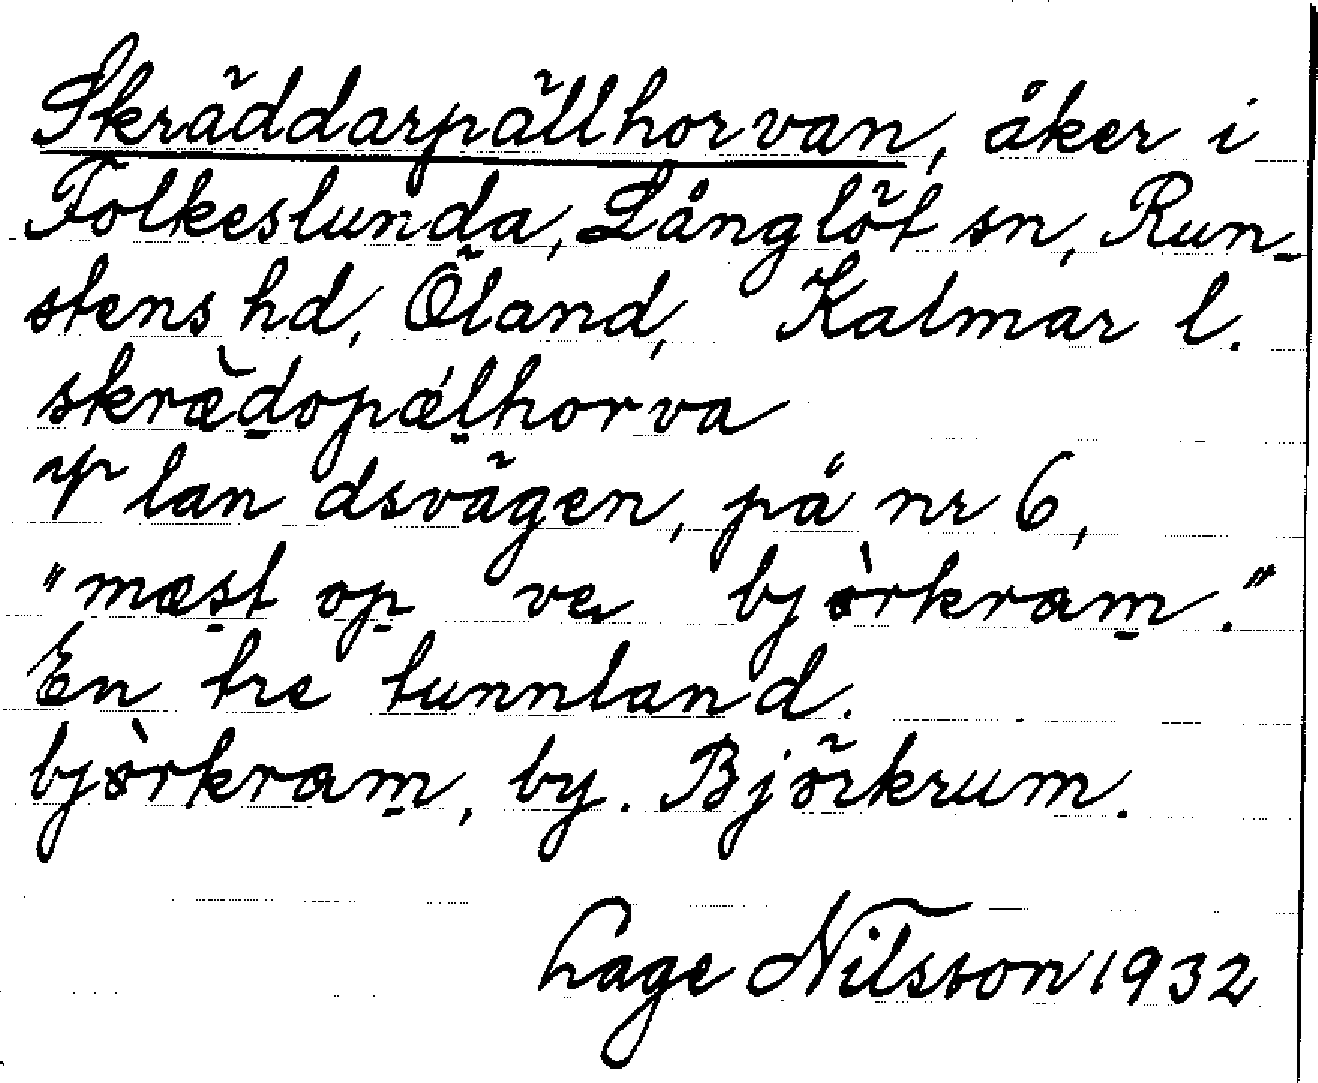 Skräddarpällhorvan, åker i
Folkeslunda, Långlöt sn, Run-
stens hd, Öland, Kalmar l.
skræ̀dopǽlhorva
landsvägen, på nr 6,
"mæst op ve bjòrkram."
En tre tunnland.
bjòrkram, by. Björkrum.
Lage Nilsson 1932